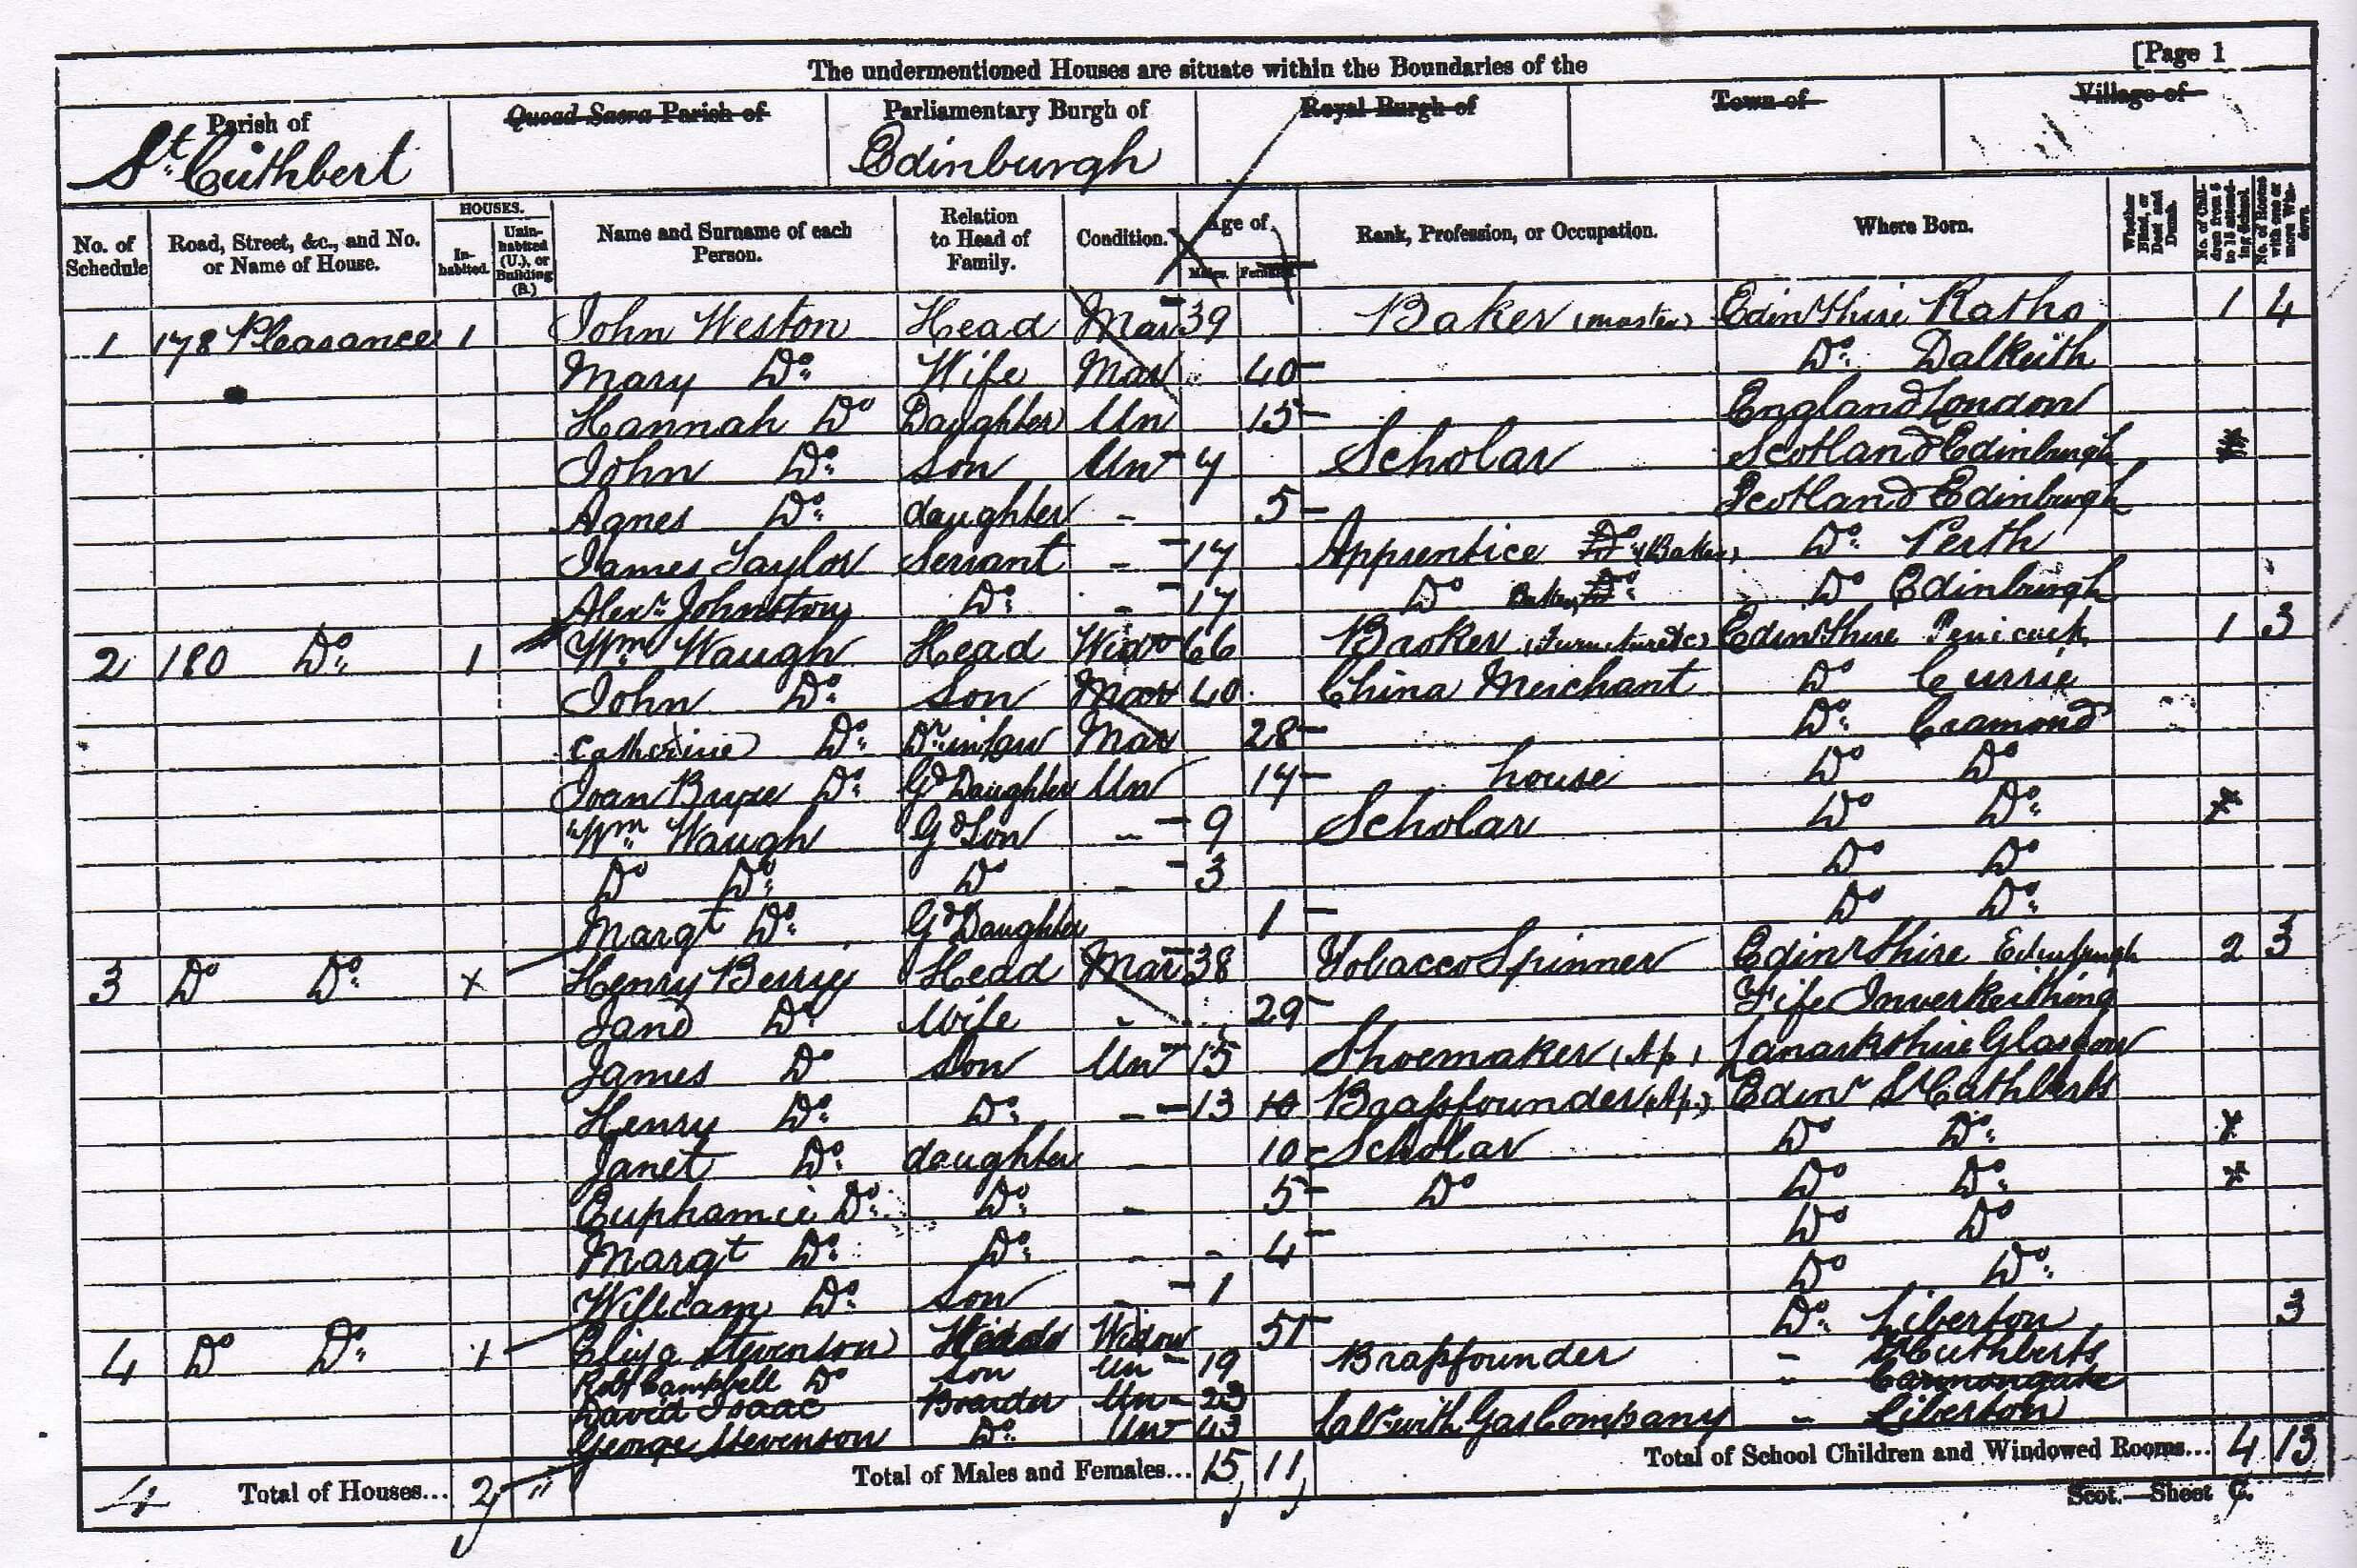 [Page 1
The undermentioned Houses are situate within the Boundaries of the
Parish of Quoad Sacra Parish of Parliamentary Burgh of Royal Burgh of Town of Village of
St. Cuthbert Edinburgh
No. of Schedule Road, Street, &c., and No. or Name of House. HOUSES. Inhabited. Uninhabited (U.), or Building (B.) Name and Surname of each Person. Relation to Head of Family. Condition. Age of Males. Females. Rank, Profession, or Occupation. Where Born. Whether Blind, or Deaf and Dumb. No. of Children from 5 to 15 attending School. No. of Rooms with one or more Windows.
1 178 Pleasance 1 John Weston Head Mar 39 Baker (master) Edinrshire Ratho 1 4
Mary Do. Wife Mar 40 Do. Dalkeith
Hannah Do Daughter Un 15 England London
John Do. Son Un 7 Scholar Scotland Edinburgh
Agnes Do. daughter - 5 Scotland Edinburgh
James Taylor Servant - 17 Apprentice Do. (Baker) Do. Perth
Alexr. Johnston Do. - 17 Do Baker Do. Do Edinburgh
2 180 Do. 1 Wm Waugh Head Widr 66 Broker (Furniture &c) Edinrshire Penicuick 1 3
John Do. Son Mar 40 China Merchant Do Currie
Catherine Do. Dr. in law Mar 28 Do. Cramond
Joan Do. Gd Daughter Un 17 house Do Do
Wm Waugh Gd Son - 9 Scholar Do Do. x
Do Do. Do - 3 Do Do
Margt Do. Gd Daughter 1 Do Do.
3 Do Do. x Henry Berry Head Mar 38 Tobacco Spinner Edinrshire Edinburgh 2 3
Jane Do. Wife - 29 Fife Inverkeithing
James Do Son Un 15 Shoemaker (Ap.) Lanarkshire Glasgow
Henry Do. Do. - 13 10 Brassfounder (Ap.) Edinr St Cuthberts
Janet Do. daughter - 10 Scholar Do Do. x
Euphamie Do. Do. - 5 Do Do Do. x
Margt Do. Do. - 4 Do Do
William Do. Son - 1 Do Do.
4 Do Do. 1 Eliza Stevenson Head Widow 51 Do. Liberton 3
Robt Campbell Do Son Un 19 Brassfounder - St Cuthberts
David Isaac Boarder Un 23 - Cannongate
George Stevenson Do. Un 43 with Gas Company - Liberton
4 Total of Houses... 2 Total of Males and Females... 15 11 Total of School Children and Windowed Rooms... 4 13
Scot.—Sheet C.